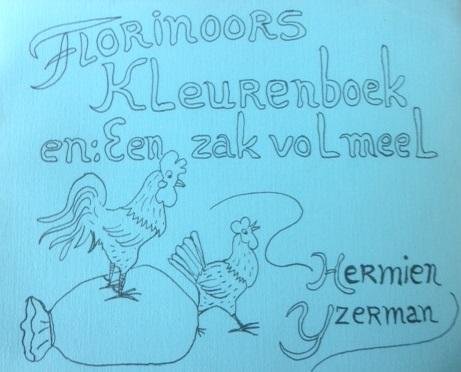 Florinoors
Kleurenboek
en: Een zak vol meel
Hermien
Yzerman